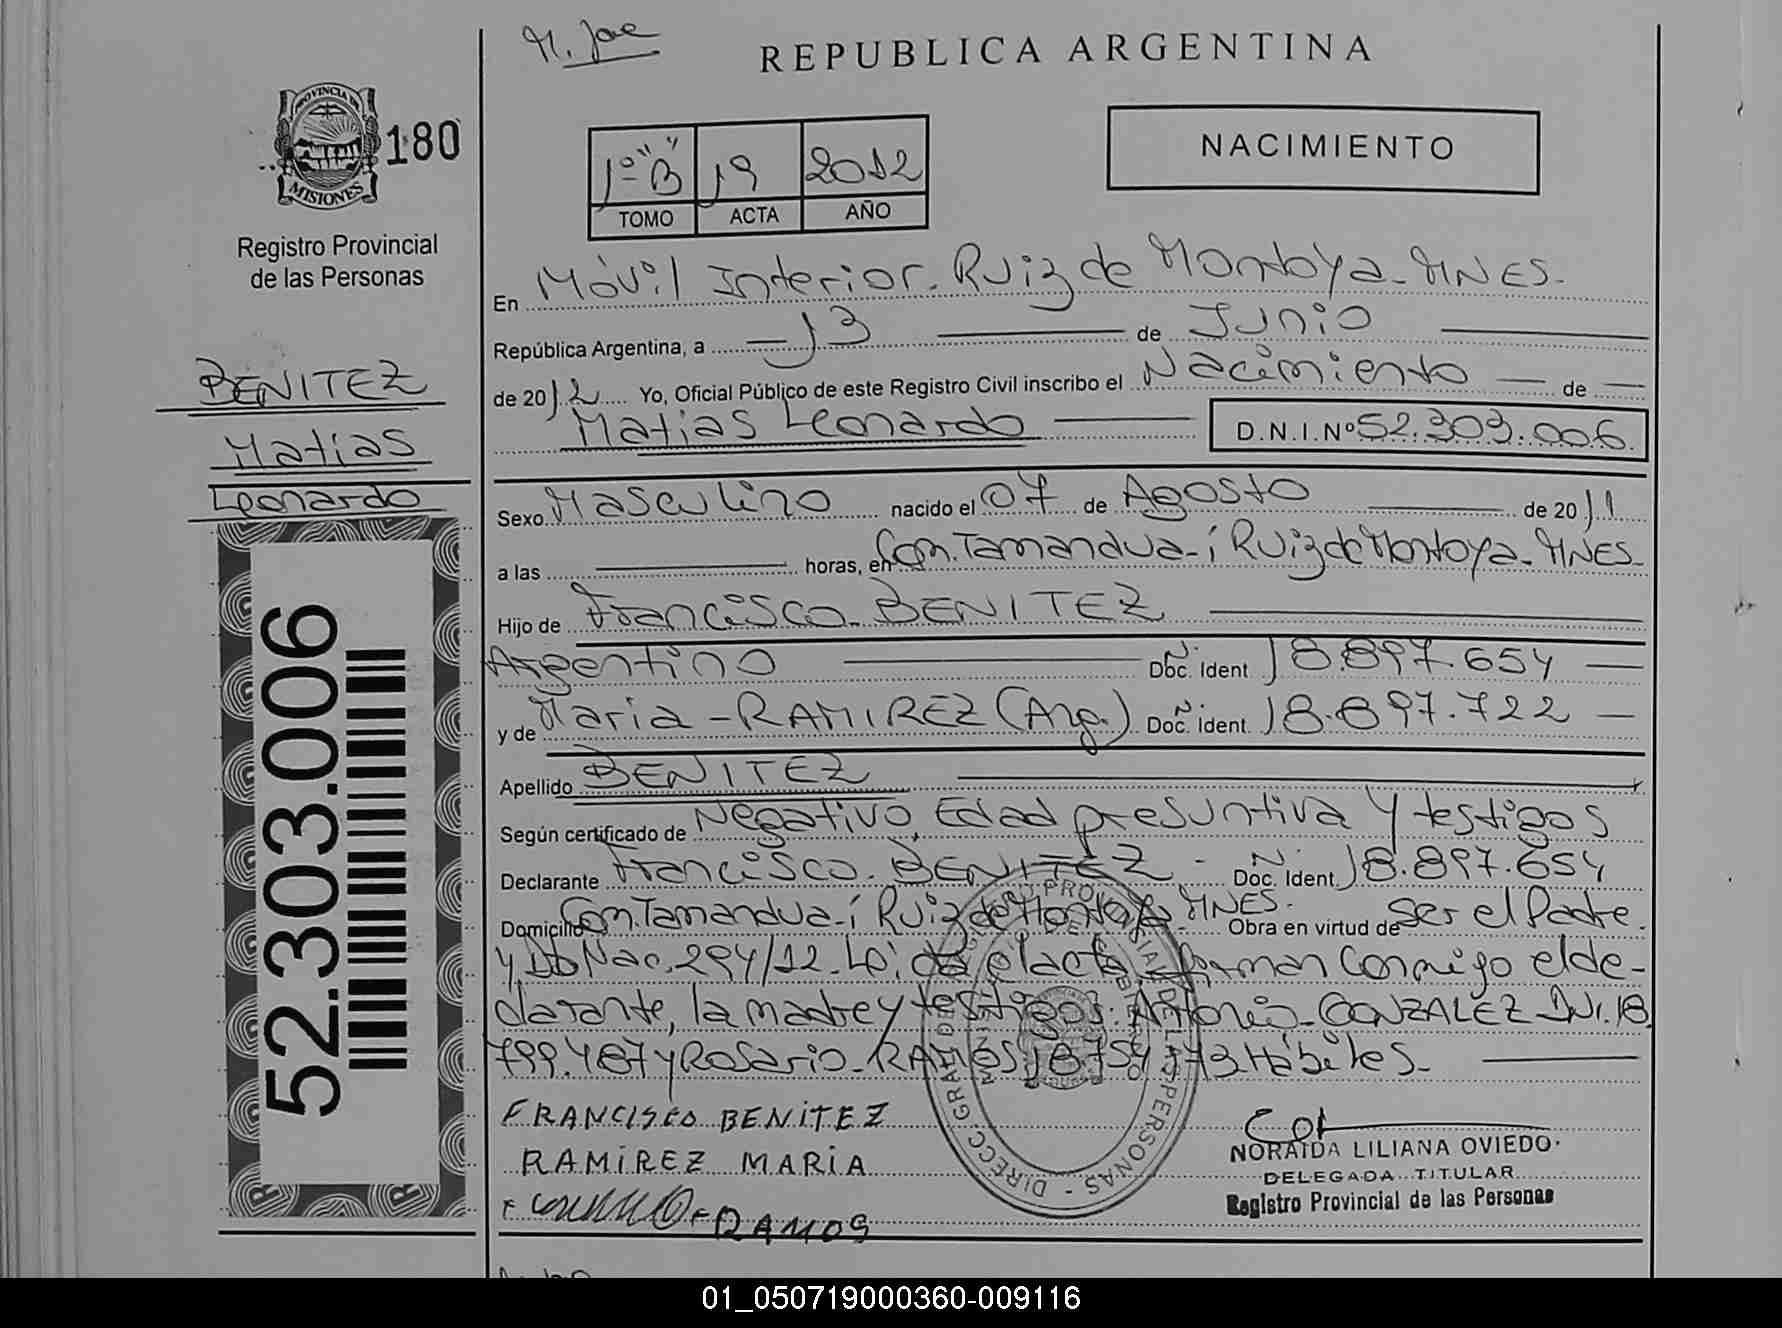 M. Jae
REPUBLICA ARGENTINA
PROVINCIA DE
MISIONES
180
1º "B" 19 2012
TOMO ACTA AÑO
NACIMIENTO
Registro Provincial
de las Personas
BENITEZ
Matias
Leonardo
52.303.006
En Móvil Interior. Ruiz de Montoya - MNES.
República Argentina, a 13 de Junio
de 2012 Yo, Oficial Público de este Registro Civil inscribo el Nacimiento de
Matias Leonardo D.N.I.Nº 52.303.006.
Sexo Masculino nacido el 07 de Agosto de 2011
a las horas, en Com. Tamandua-í Ruiz de Montoya - MNES.
Hijo de Francisco. BENITEZ
Argentino Doc. Ident 18.897.654
y de Maria - RAMIREZ (Arg.) Doc. Ident. 18.897.722
Apellido BENITEZ
Según certificado de Negativo, Edad presuntiva y testigos
Declarante Francisco. BENITEZ - Doc. Ident. 18.897.654
Domicilio Com. Tamandua-í Ruiz de Montoya MNES. Obra en virtud de ser el Padre
y Db Nac. 294/12. Leida el acta firman conmigo el de-
clarante, la madre y testigos: Antonio - GONZALEZ DNI. 18.
799.487 y Rosario - RAMOS 18754 Hábiles.
FRANCISCO BENITEZ
RAMIREZ MARIA
RAMOS
NORAIDA LILIANA OVIEDO
DELEGADA TITULAR
Registro Provincial de las Personas
01_050719000360-009116